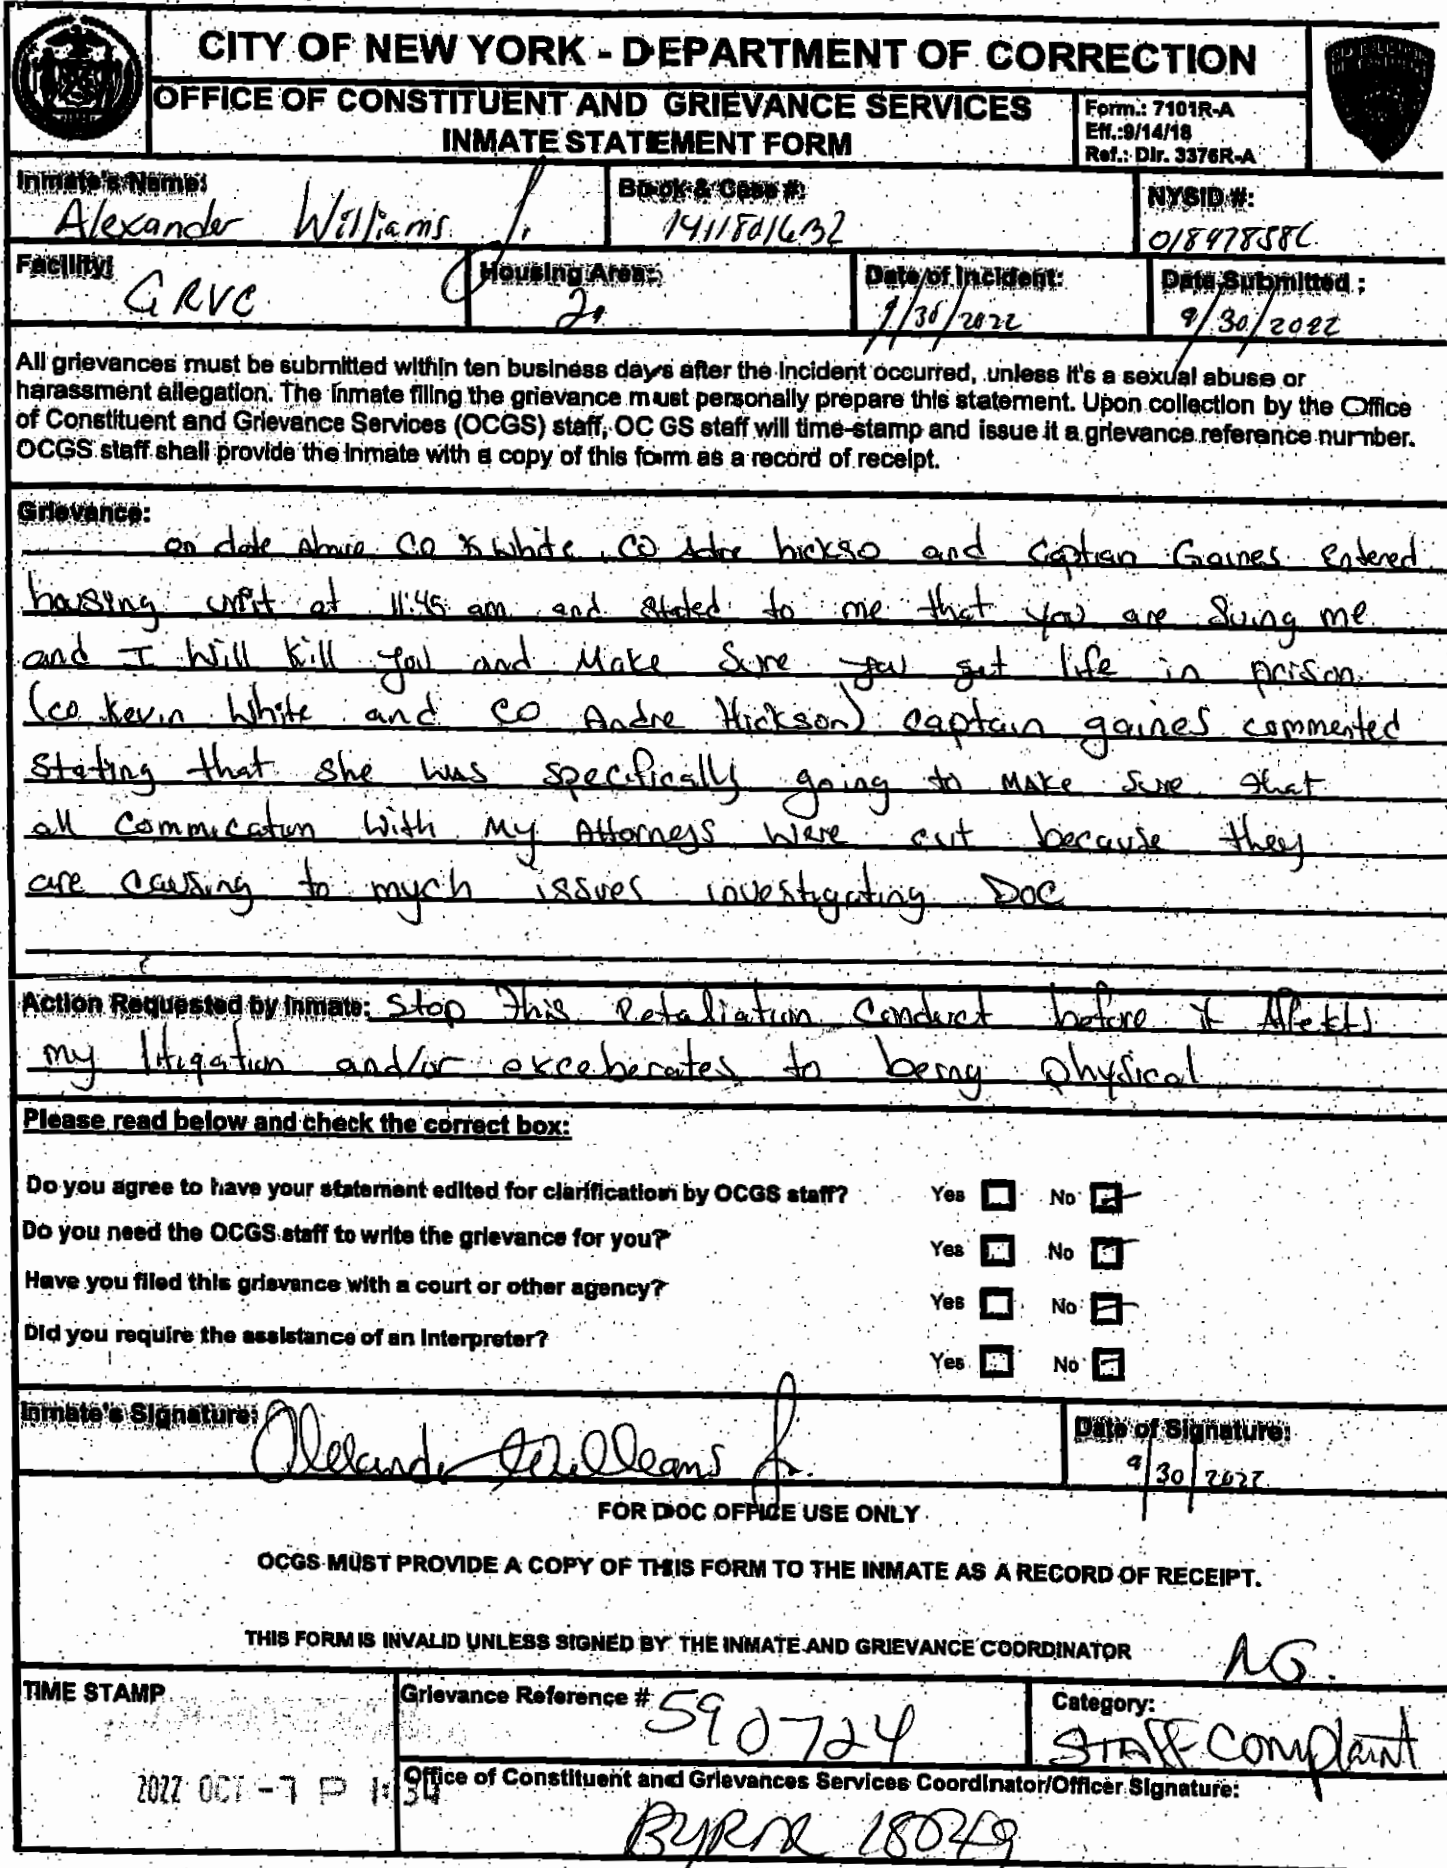 CITY OF NEW YORK - DEPARTMENT OF CORRECTION
OFFICE OF CONSTITUENT AND GRIEVANCE SERVICES
INMATE STATEMENT FORM
Form.: 7101R-A
Eff.:9/14/18
Ref.: Dir. 3376R-A
Inmate's Name: Alexander Williams Jr.
Book & Case #: 1411801632
NYSID #: 01897858L
Facility: GRVC
Housing Area: 2
Date of Incident: 9/30/2022
Date Submitted: 9/30/2022
All grievances must be submitted within ten business days after the incident occurred, unless it's a sexual abuse or
harassment allegation. The inmate filing the grievance must personally prepare this statement. Upon collection by the Office
of Constituent and Grievance Services (OCGS) staff, OCGS staff will time-stamp and issue it a grievance reference number.
OCGS staff shall provide the inmate with a copy of this form as a record of receipt.
Grievance:
on date above CO White, CO hickso and Captian Gaines Entered
housing unit at 11:45 am and stated to me that you are Suing me
and I Will Kill you and Make Sure you get life in prison
(co Kevin White and CO Andre Hickson) captain gaines commented
Stating that she was specifically going to MAKE Sure that
all Commucation With My Attorneys Were cut because they
are causing to mych issues investigating DOC
Action Requested by Inmate: Stop This Retaliation Conduct before it Affekts
my litigation and/or exceberates to being physical
Please read below and check the correct box:
Do you agree to have your statement edited for clarification by OCGS staff? Yes No
Do you need the OCGS staff to write the grievance for you? Yes No
Have you filed this grievance with a court or other agency? Yes No
Did you require the assistance of an interpreter? Yes No
Inmate's Signature: Alexander Williams Jr.
Date of Signature: 9/30/2022
FOR DOC OFFICE USE ONLY
OCGS MUST PROVIDE A COPY OF THIS FORM TO THE INMATE AS A RECORD OF RECEIPT.
THIS FORM IS INVALID UNLESS SIGNED BY THE INMATE AND GRIEVANCE COORDINATOR
NG.
TIME STAMP
2022 OCT -7 P 1:34
Grievance Reference # 590724
Category: STAFF Complaint
Office of Constituent and Grievances Services Coordinator/Officer Signature:
BYRNE 18049